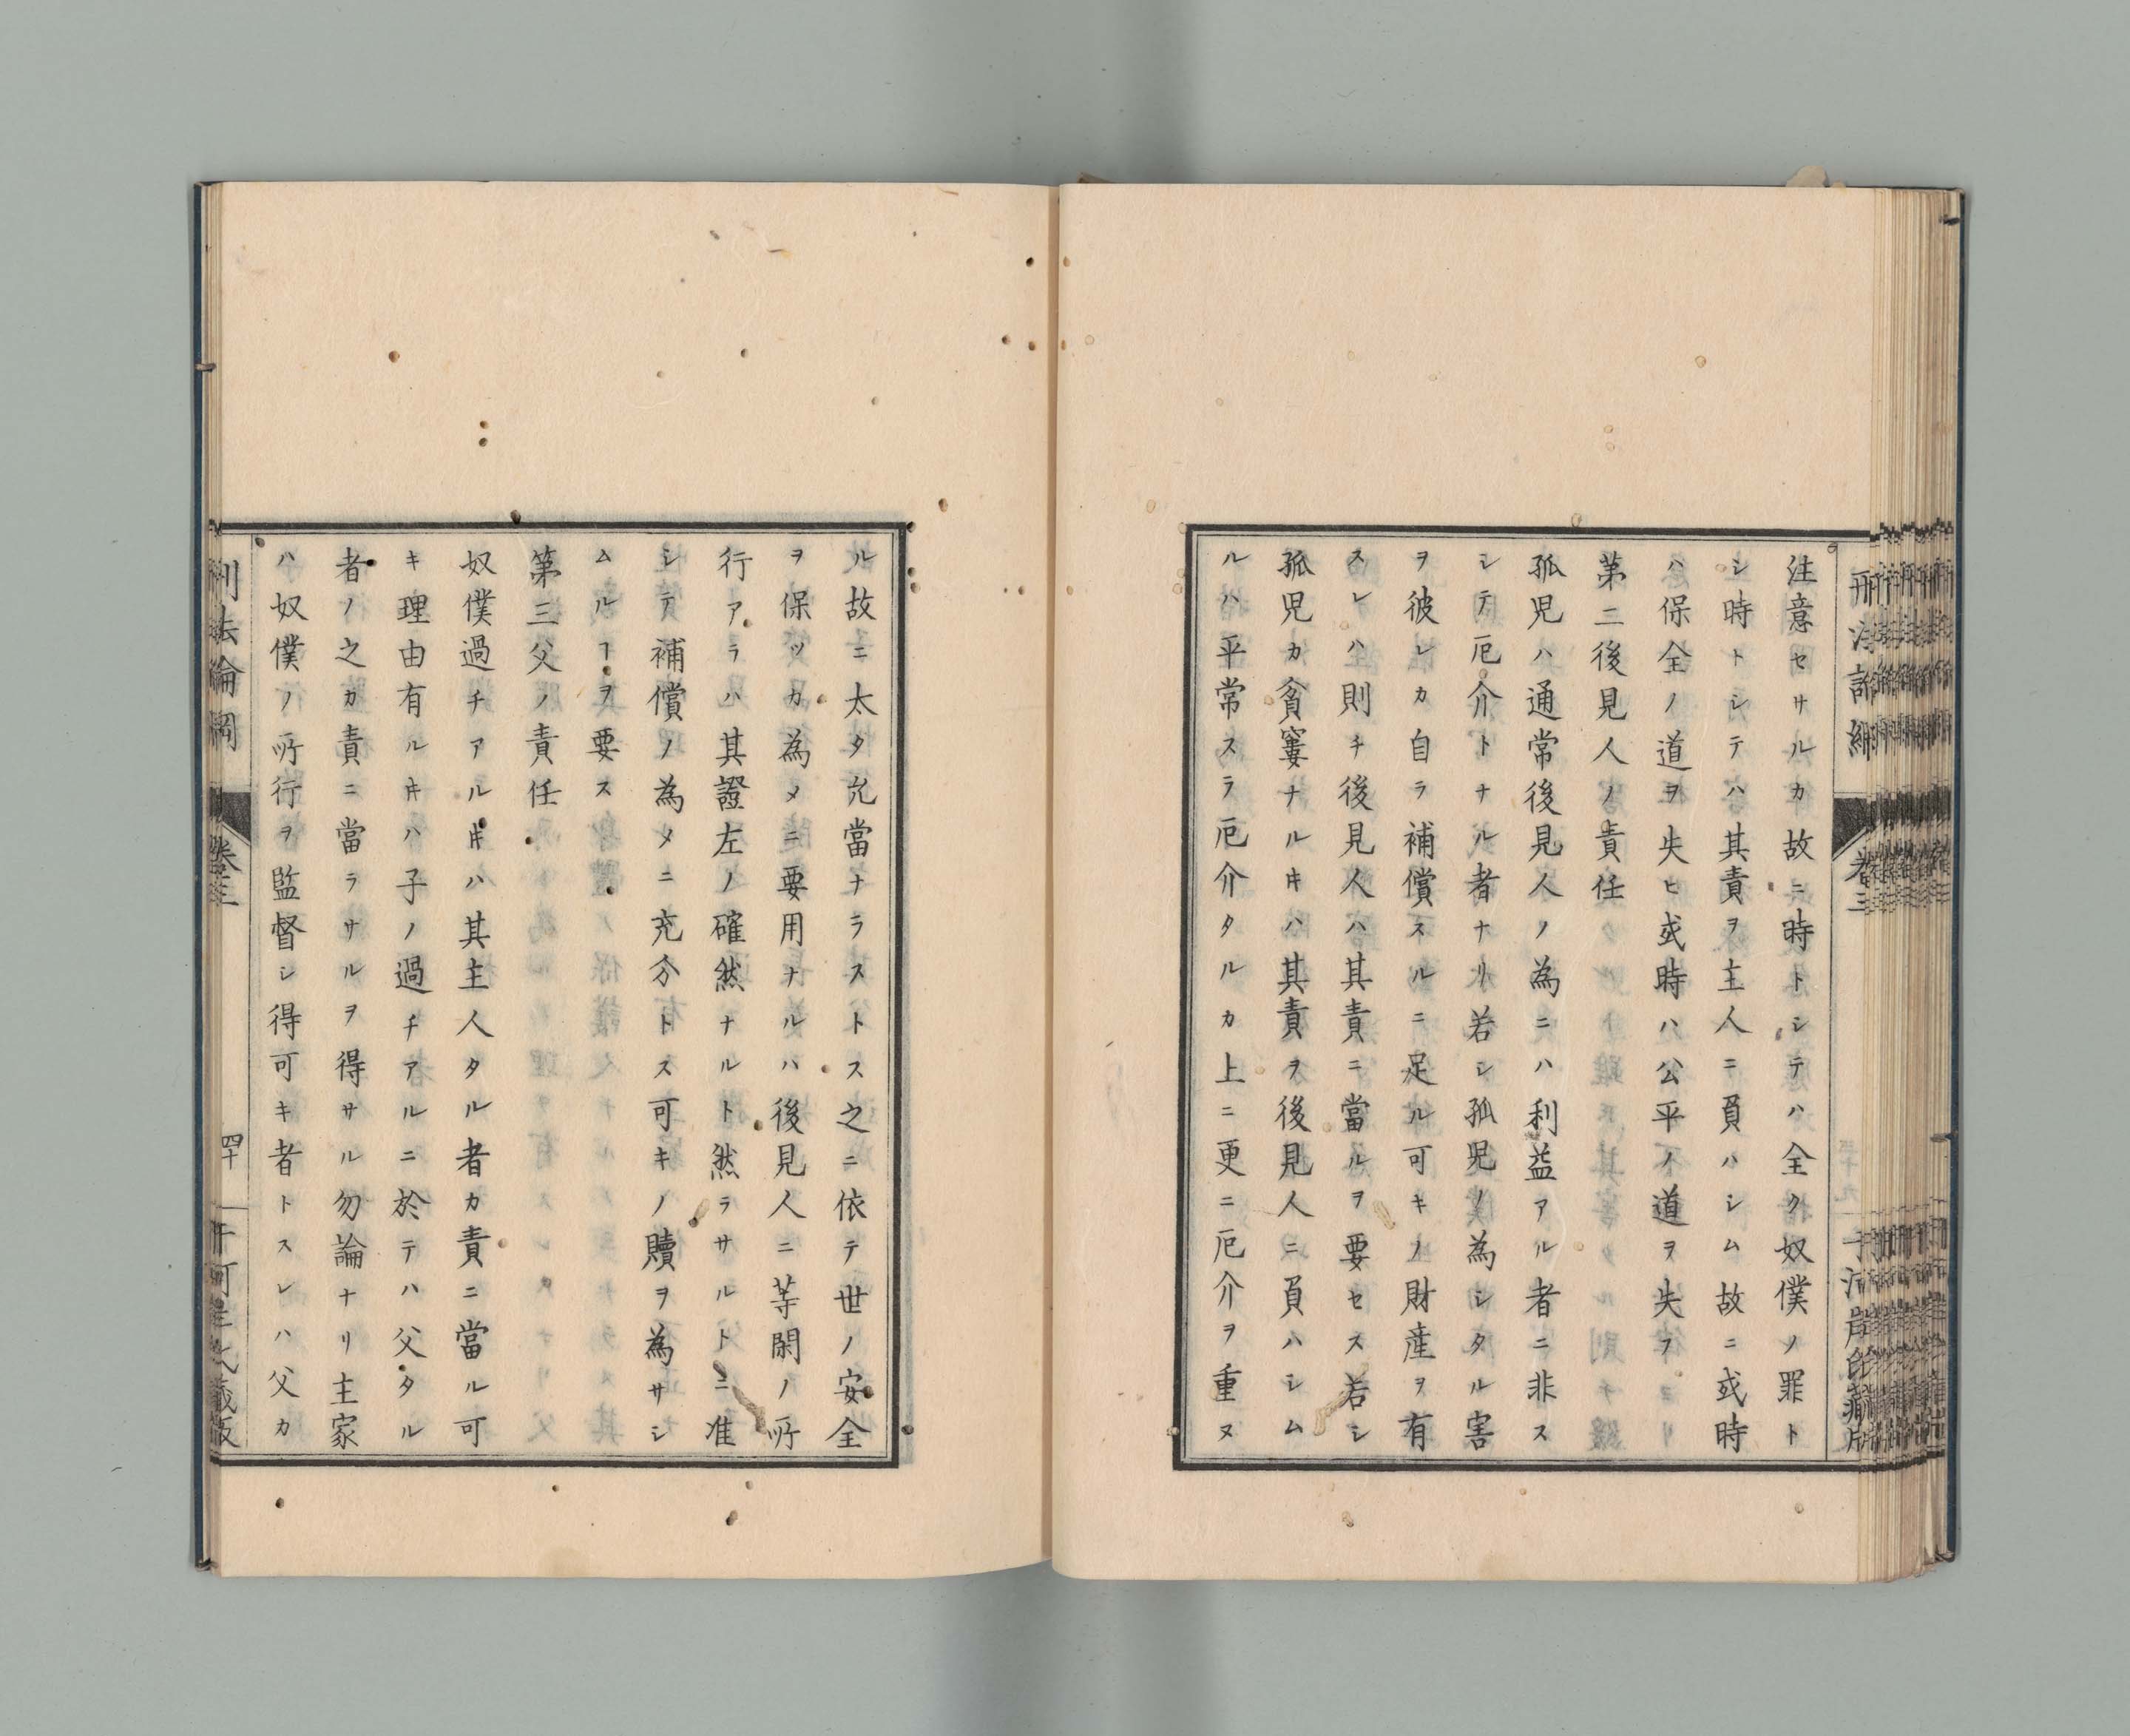 注意セサルカ故ニ時トシテハ全ク奴僕ノ罪ト
シ時トシテハ其責ヲ主人ニ負ハシム故ニ或時
ハ保全ノ道ヲ失ヒ或時ハ公平ノ道ヲ失フ
第二後見人ノ責任
孤児ハ通常後見人ノ為ニハ利益アル者ニ非ス
シテ厄介トナル者ナリ若シ孤児ノ為シタル害
ヲ彼レカ自ラ補償スルニ足ル可キノ財産ヲ有
スレハ則チ後見人ハ其責ニ當ルヲ要セス若シ
孤児カ貧窶ナルキハ其責ヲ後見人ニ負ハシム
ルハ平常スラ厄介タルカ上ニ更ニ厄介ヲ重ヌ
ル故ニ太タ允當ナラストス之ニ依テ世ノ安全
ヲ保ツカ為メニ要用ナルハ後見人ニ等閑ノ所
行アラハ其證左ノ確然ナルト然ラサルトニ准
シテ補償ノ為メニ充分トス可キノ贖ヲ為サシ
ムルヿヲ要ス
第三父ノ責任
奴僕過チアルキハ其主人タル者カ責ニ當ル可
キ理由有ルキハ子ノ過チアルニ於テハ父タル
者ノ之カ責ニ當ラサルヲ得サル勿論ナリ主家
ハ奴僕ノ所行ヲ監督シ得可キ者トスレハ父カ
刑法論綱
卷三
四十